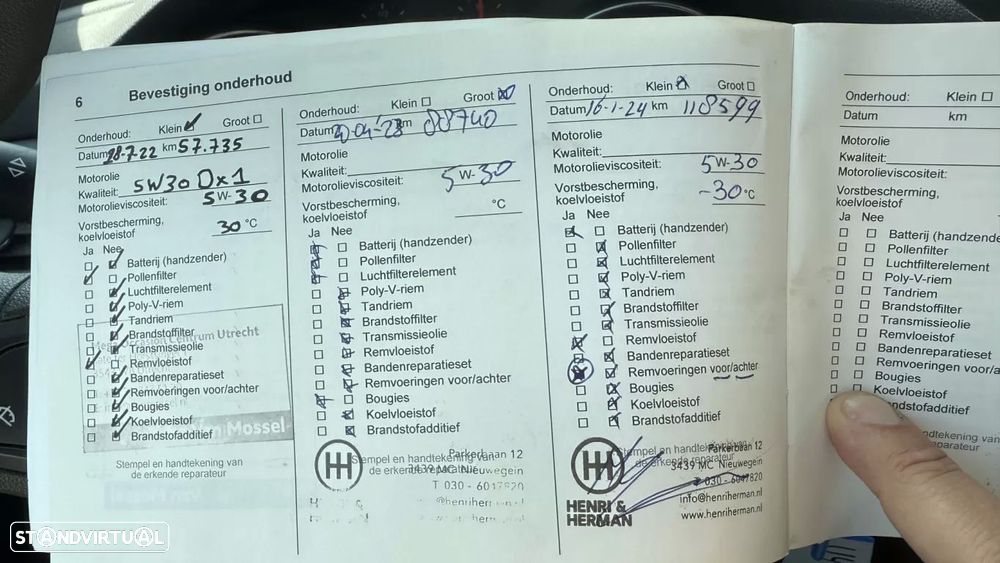 6 Bevestiging onderhoud
Onderhoud: Klein Groot
Datum 28-7-22 km 57.735
Motorolie
Kwaliteit: 5W30 Dx1
Motorolieviscositeit: 5W-30
Vorstbescherming,
koelvloeistof 30 °C
Ja Nee
Batterij (handzender)
Pollenfilter
Luchtfilterelement
Poly-V-riem
Tandriem
Brandstoffilter
Transmissieolie
Remvloeistof
Bandenreparatieset
Remvoeringen voor/achter
Bougies
Koelvloeistof
Brandstofadditief
Centrum Utrecht
Mossel
Stempel en handtekening van
de erkende reparateur
Onderhoud: Klein Groot
Datum 20-04-23 km 88740
Motorolie
Kwaliteit:
Motorolieviscositeit: 5W-30
Vorstbescherming,
koelvloeistof °C
Ja Nee
Batterij (handzender)
Pollenfilter
Luchtfilterelement
Poly-V-riem
Tandriem
Brandstoffilter
Transmissieolie
Remvloeistof
Bandenreparatieset
Remvoeringen voor/achter
Bougies
Koelvloeistof
Brandstofadditief
Stempel en handtekening van
de erkende reparateur
Parkerbaan 12
3439 MC Nieuwegein
T 030 - 6047820
Onderhoud: Klein Groot
Datum 16-1-24 km 118599
Motorolie
Kwaliteit:
Motorolieviscositeit: 5W-30
Vorstbescherming,
koelvloeistof -30 °C
Ja Nee
Batterij (handzender)
Pollenfilter
Luchtfilterelement
Poly-V-riem
Tandriem
Brandstoffilter
Transmissieolie
Remvloeistof
Bandenreparatieset
Remvoeringen voor/achter
Bougies
Koelvloeistof
Brandstofadditief
Stempel en handtekening van
de erkende reparateur
Parkerbaan 12
3439 MC Nieuwegein
T 030 - 6047820
info@henriherman.nl
www.henriherman.nl
HENRI &
HERMAN
Onderhoud: Klein
Datum km
Motorolie
Kwaliteit:
Motorolieviscositeit:
Vorstbescherming,
koelvloeistof
Ja Nee
Batterij (handzende
Pollenfilter
Luchtfilterelement
Poly-V-riem
Tandriem
Brandstoffilter
Transmissieolie
Remvloeistof
Bandenreparatieset
Remvoeringen voor/a
Bougies
Koelvloeistof
ndstofadditief
handtekening van
de reparateur
STANDVIRTUAL